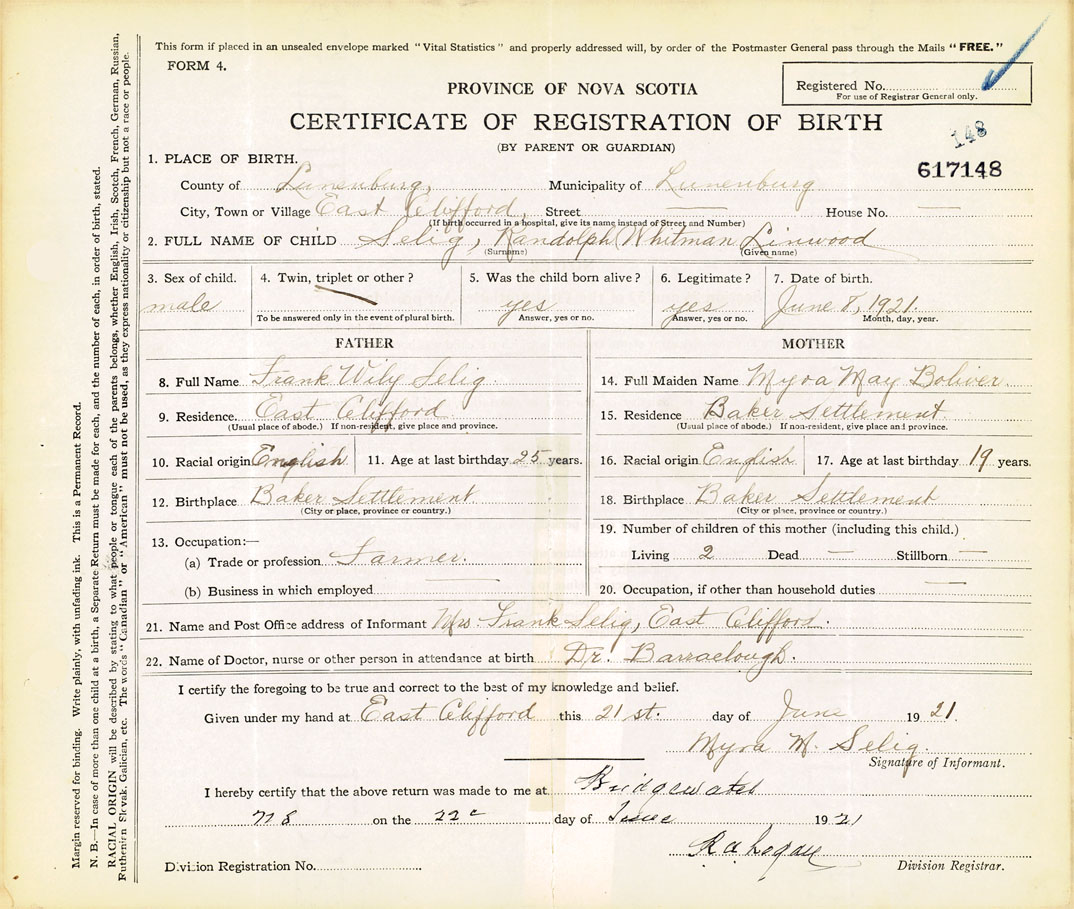 This form if placed in an unsealed envelope marked "Vital Statistics" and properly addressed will, by order of the Postmaster General pass through the Mails "FREE."
FORM 4.
Registered No.
For use of Registrar General only.
PROVINCE OF NOVA SCOTIA
CERTIFICATE OF REGISTRATION OF BIRTH
(BY PARENT OR GUARDIAN)
148
617148
1. PLACE OF BIRTH.
County of Lunenburg, Municipality of Lunenburg
City, Town or Village East Clifford, Street — House No. —
(If birth occurred in a hospital, give its name instead of Street and Number)
2. FULL NAME OF CHILD Selig, Randolph Whitman Linwood
(Surname) (Given name)
3. Sex of child. 4. Twin, triplet or other? 5. Was the child born alive? 6. Legitimate? 7. Date of birth.
male yes yes June 8, 1921.
To be answered only in the event of plural birth. Answer, yes or no. Answer, yes or no. Month, day, year.
FATHER
8. Full Name Frank Wily Selig
9. Residence. East Clifford
(Usual place of abode.) If non-resident, give place and province.
10. Racial origin English 11. Age at last birthday 25 years.
12. Birthplace Baker Settlement
(City or place, province or country.)
13. Occupation:—
(a) Trade or profession Farmer.
(b) Business in which employed —
MOTHER
14. Full Maiden Name Myra May Boliver.
15. Residence Baker Settlement
(Usual place of abode.) If non-resident, give place and province.
16. Racial origin English 17. Age at last birthday 19 years.
18. Birthplace Baker Settlement
(City or place, province or country.)
19. Number of children of this mother (including this child.)
Living 2 Dead — Stillborn —
20. Occupation, if other than household duties —
21. Name and Post Office address of Informant Mrs. Frank Selig, East Clifford.
22. Name of Doctor, nurse or other person in attendance at birth Dr. Barraclough.
I certify the foregoing to be true and correct to the best of my knowledge and belief.
Given under my hand at East Clifford this 21st. day of June 1921.
Myra M. Selig.
Signature of Informant.
I hereby certify that the above return was made to me at Bridgewater
N S on the 22 day of June 1921
Division Registration No. Division Registrar.
Margin reserved for binding. Write plainly, with unfading ink. This is a Permanent Record.
N. B.—In case of more than one child at a birth, a Separate Return must be made for each, and the number of each, in order of birth, stated.
RACIAL ORIGIN will be described by stating to what people or tongue each of the parents belongs, whether English, Irish, Scotch, French, German, Russian,
Ruthenian Slovak, Galician, etc. The words "Canadian" or "American" must not be used, as they express nationality or citizenship but not a race or people.